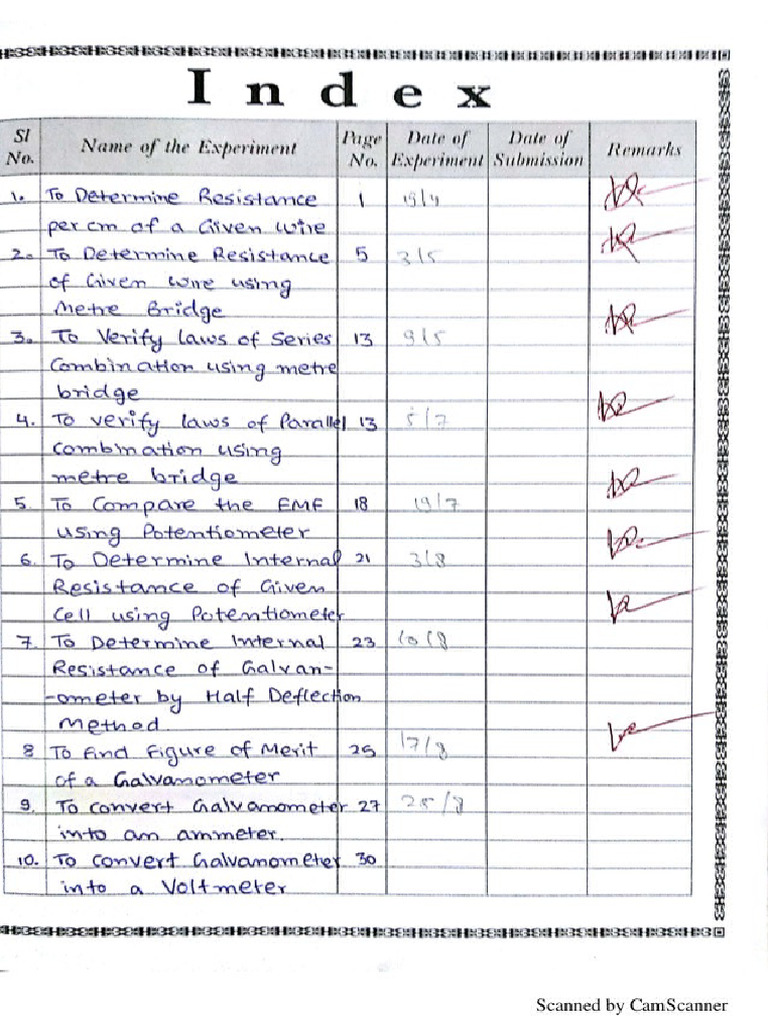 Index
Sl No. Name of the Experiment Page No. Date of Experiment Date of Submission Remarks
1. To Determine Resistance 1 19/4
per cm of a Given wire
2. To Determine Resistance 5 3/5
of Given wire using
Metre Bridge
3. To Verify laws of Series 13 9/5
Combination using metre
bridge
4. To verify laws of Parallel 13 5/7
Combination using
metre bridge
5. To Compare the EMF 18 19/7
using Potentiometer
6. To Determine Internal 21 3/8
Resistance of Given
Cell using Potentiometer
7. To Determine Internal 23 10/8
Resistance of Galvan-
-ometer by Half Deflection
Method.
8 To find Figure of Merit 25 17/8
of a Galvanometer
9. To convert Galvanometer 27 25/8
into an ammeter.
10. To convert Galvanometer 30
into a Voltmeter
Scanned by CamScanner